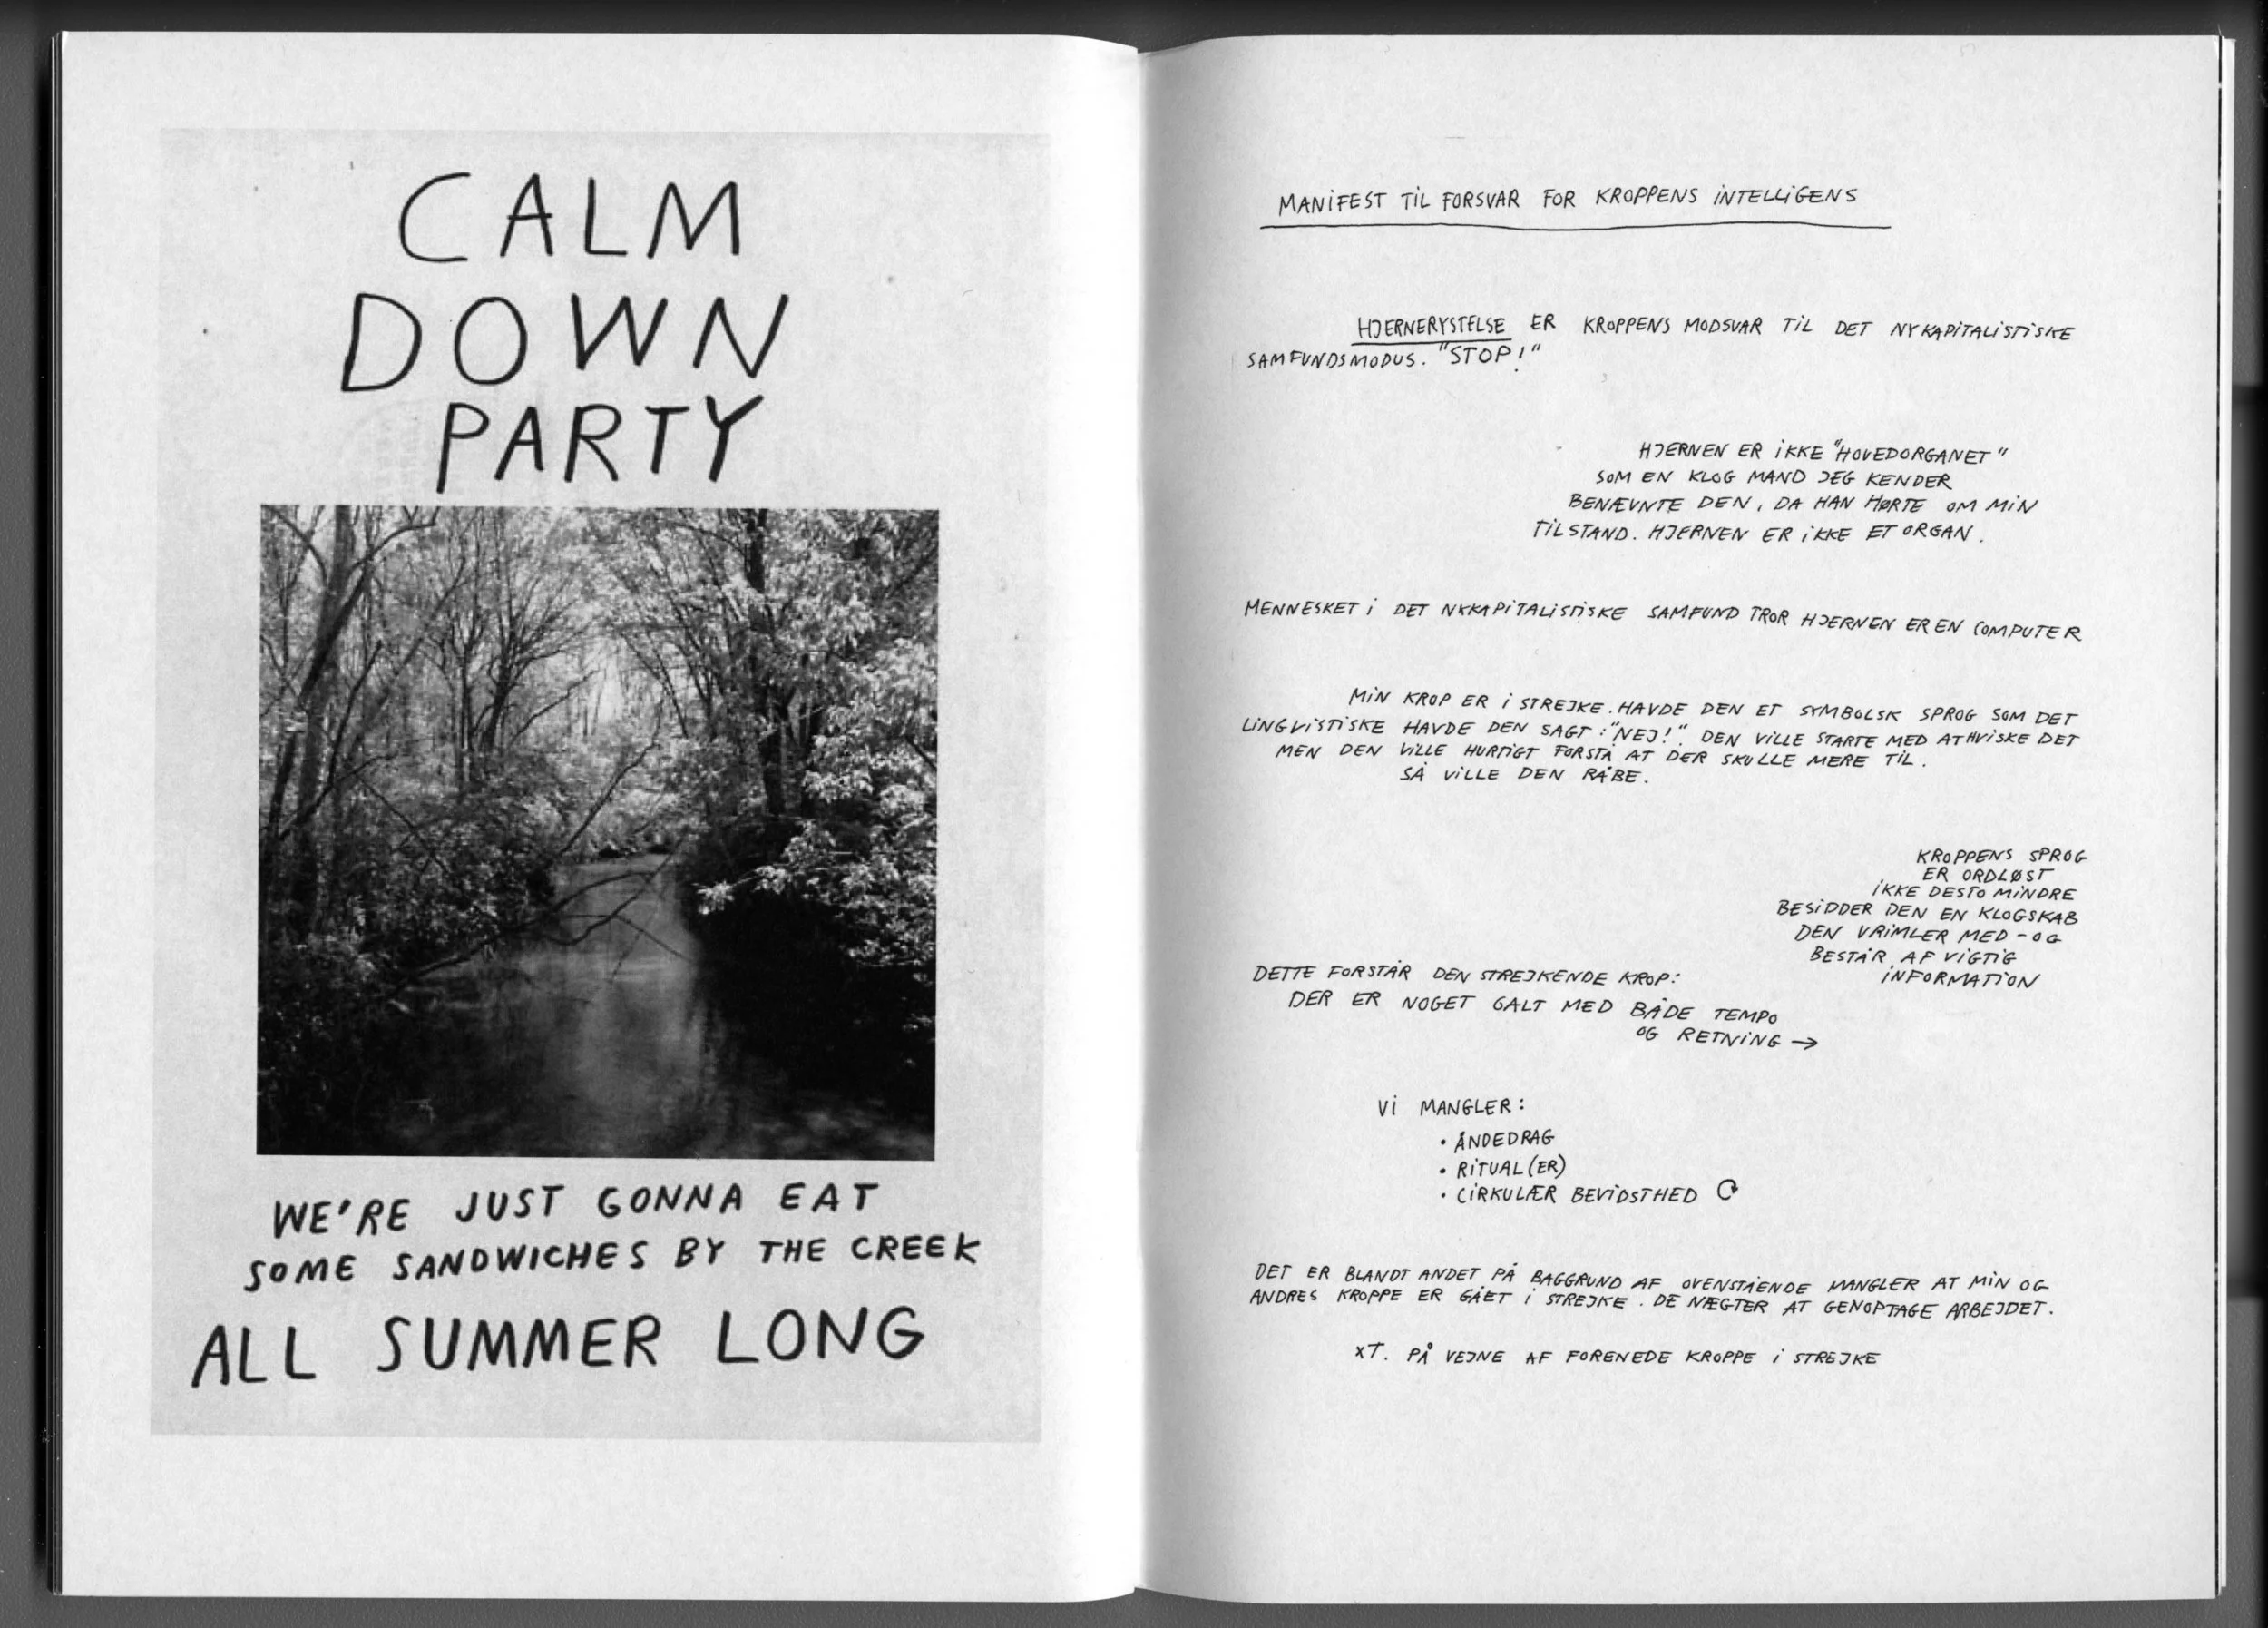 CALM
DOWN
PARTY
WE'RE JUST GONNA EAT
SOME SANDWICHES BY THE CREEK
ALL SUMMER LONG
MANIFEST TIL FORSVAR FOR KROPPENS INTELLIGENS
HJERNERYSTELSE ER KROPPENS MODSVAR TIL DET NYKAPITALISTISKE
SAMFUNDSMODUS. "STOP!"
HJERNEN ER IKKE "HOVEDORGANET"
SOM EN KLOG MAND JEG KENDER
BENÆVNTE DEN, DA HAN HØRTE OM MIN
TILSTAND. HJERNEN ER IKKE ET ORGAN.
MENNESKET I DET NYKAPITALISTISKE SAMFUND TROR HJERNEN ER EN COMPUTER
MIN KROP ER I STREJKE. HAVDE DEN ET SYMBOLSK SPROG SOM DET
LINGVISTISKE HAVDE DEN SAGT: "NEJ!" DEN VILLE STARTE MED AT HVISKE DET
MEN DEN VILLE HURTIGT FORSTÅ AT DER SKULLE MERE TIL.
SÅ VILLE DEN RÅBE.
KROPPENS SPROG
ER ORDLØST
IKKE DESTO MINDRE
BESIDDER DEN EN KLOGSKAB
DEN VRIMLER MED - OG
BESTÅR AF VIGTIG
INFORMATION
DETTE FORSTÅR DEN STREJKENDE KROP:
DER ER NOGET GALT MED BÅDE TEMPO
OG RETNING →
VI MANGLER:
• ÅNDEDRAG
• RITUAL(ER)
• CIRKULÆR BEVIDSTHED
DET ER BLANDT ANDET PÅ BAGGRUND AF OVENSTÅENDE MANGLER AT MIN OG
ANDRES KROPPE ER GÅET I STREJKE. DE NÆGTER AT GENOPTAGE ARBEJDET.
XT. PÅ VEJNE AF FORENEDE KROPPE I STREJKE